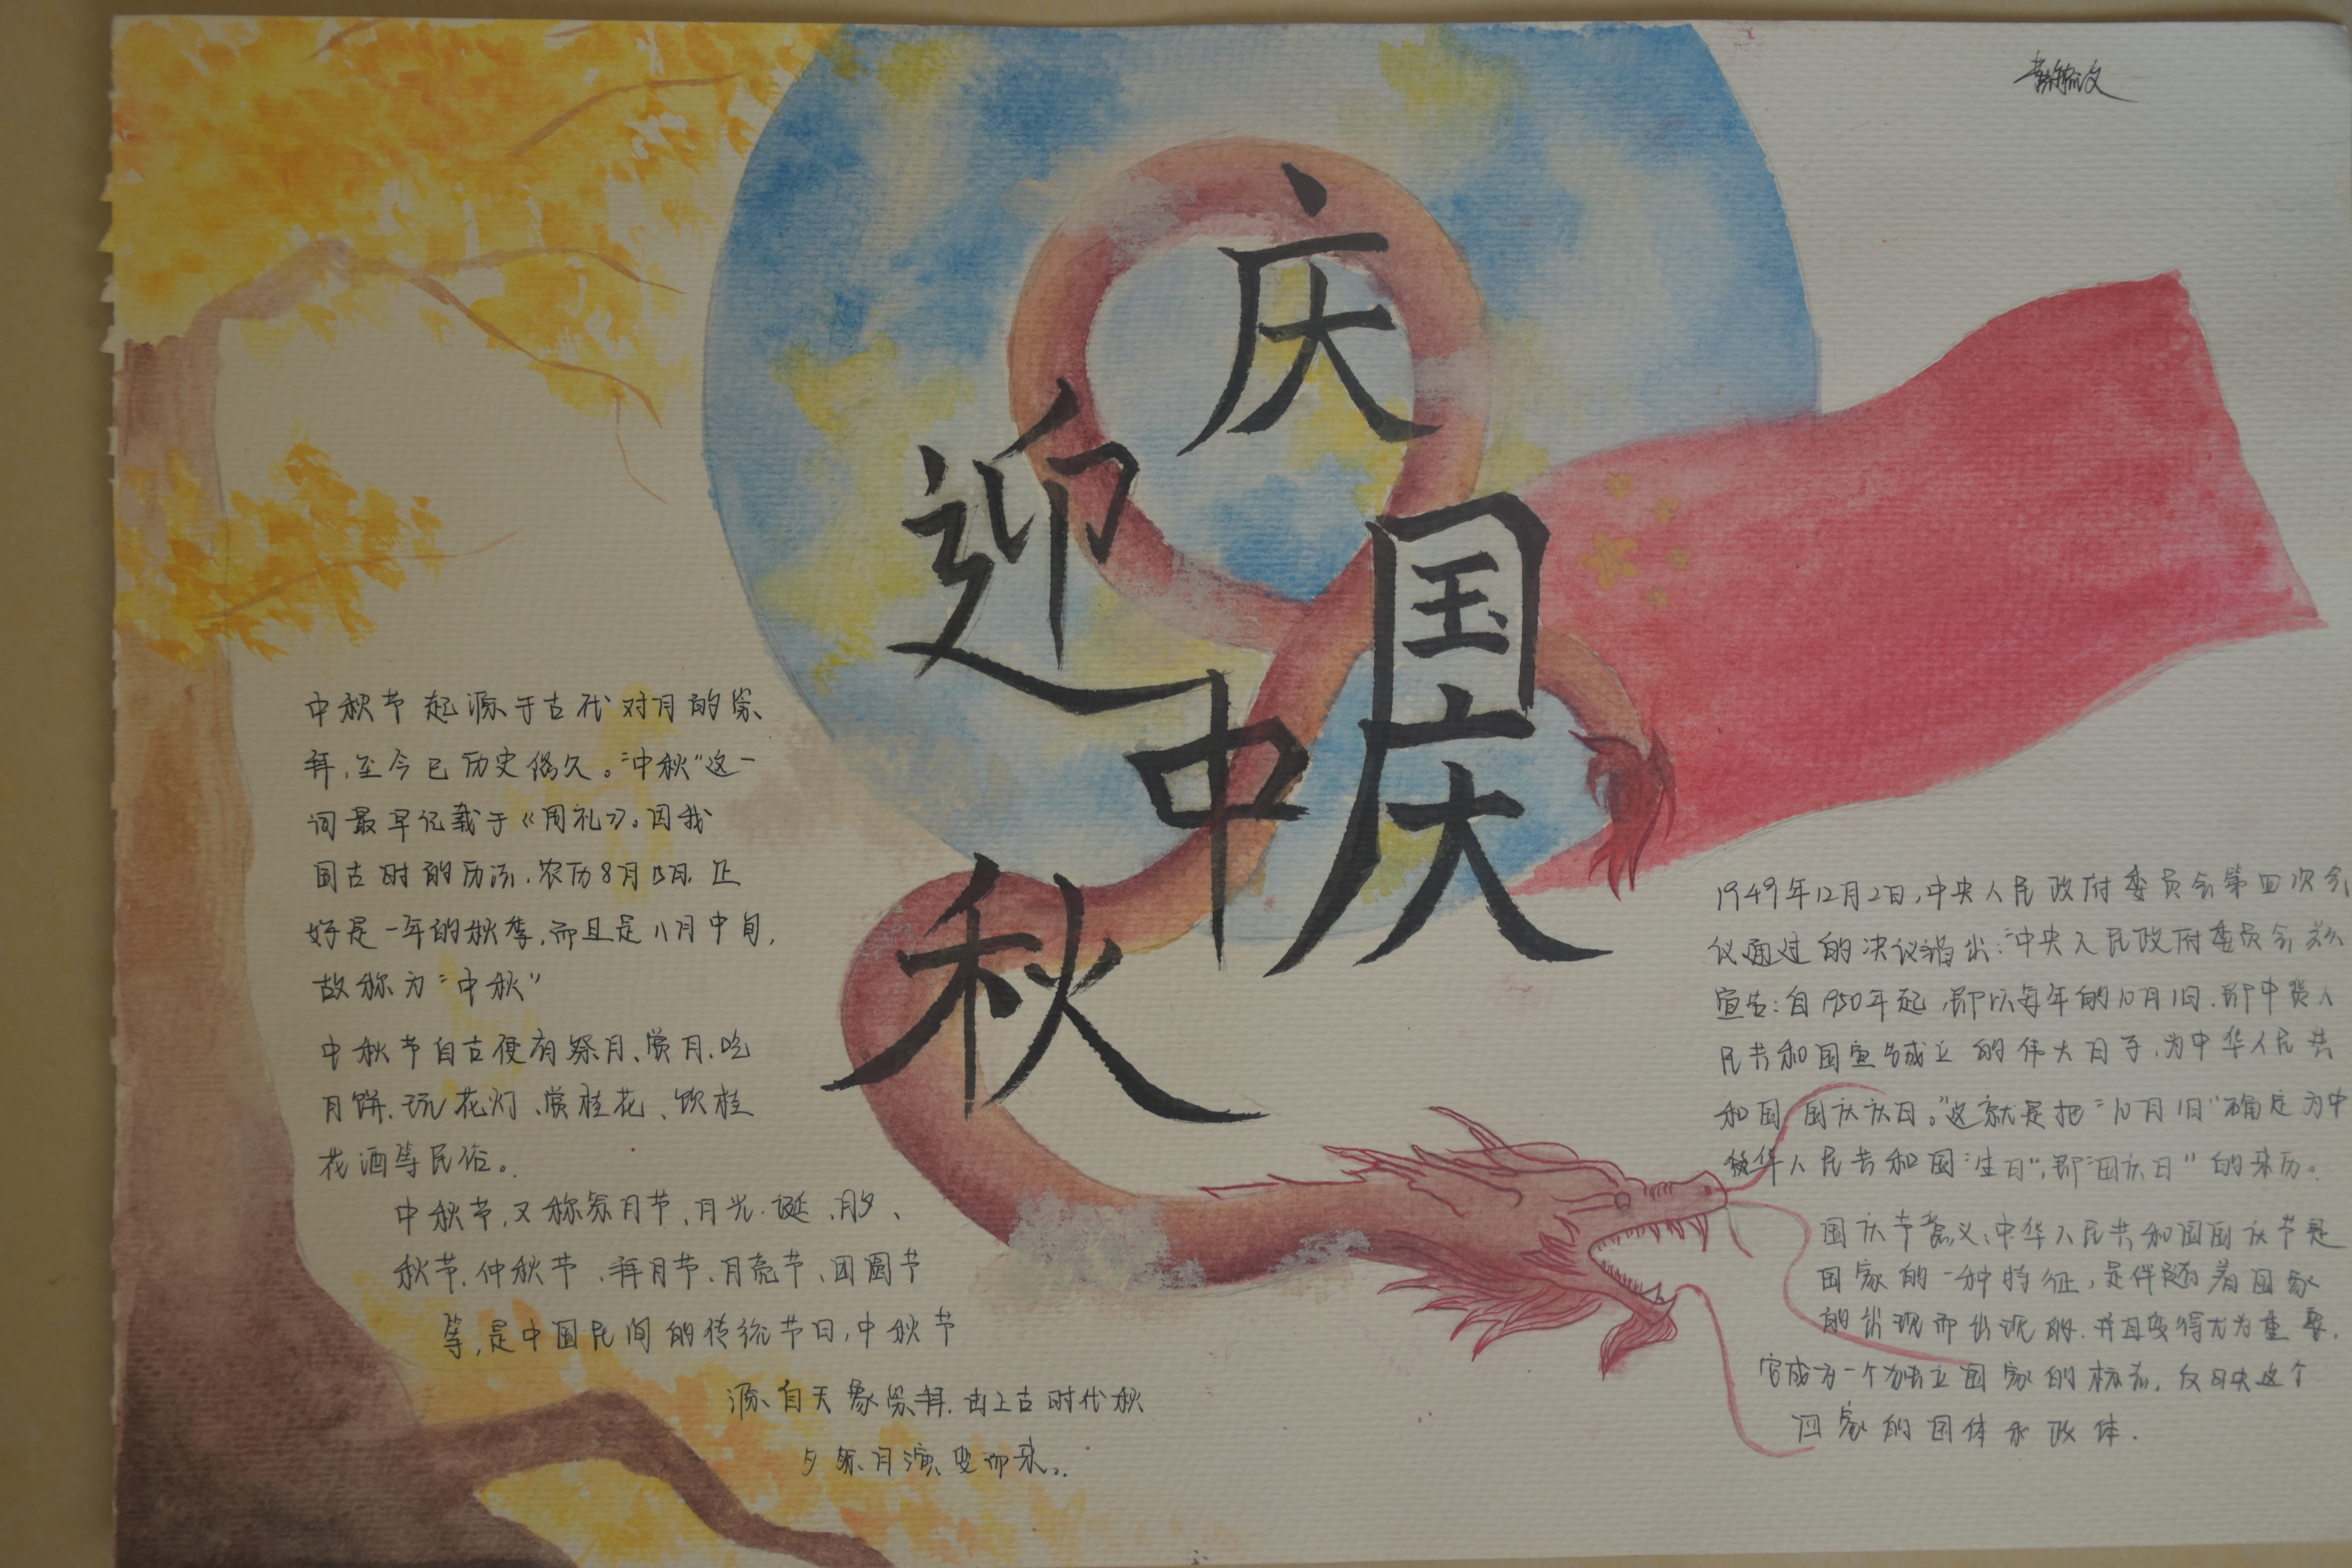 庆国庆
迎中秋
中秋节起源于古代对月的崇
拜,至今已历史悠久。“中秋”这一
词最早记载于《周礼》。因我
国古时的历法,农历8月15日,正
好是一年的秋季,而且是八月中旬,
故称为“中秋”
中秋节自古便有祭月、赏月、吃
月饼、玩花灯、赏桂花、饮桂
花酒等民俗。
中秋节,又称祭月节、月光诞、月夕、
秋节、仲秋节、拜月节、月亮节、团圆节
等,是中国民间的传统节日,中秋节
源自天象崇拜,由上古时代秋
夕祭月演变而来。
1949年12月2日,中央人民政府委员会第四次会
议通过的决议指出:“中央人民政府委员会兹
宣告:自1950年起,即以每年的10月1日,即中华人
民共和国宣告成立的伟大日子,为中华人民共
和国国庆庆日。”这就是把“10月1日”确定为中
华人民共和国“生日”,即“国庆日”的来历。
国庆节意义:中华人民共和国国庆节是
国家的一种特征,是伴随着国家
的出现而出现的,并且变得尤为重要,
它成为一个独立国家的标志,反映这个
国家的国体和政体.